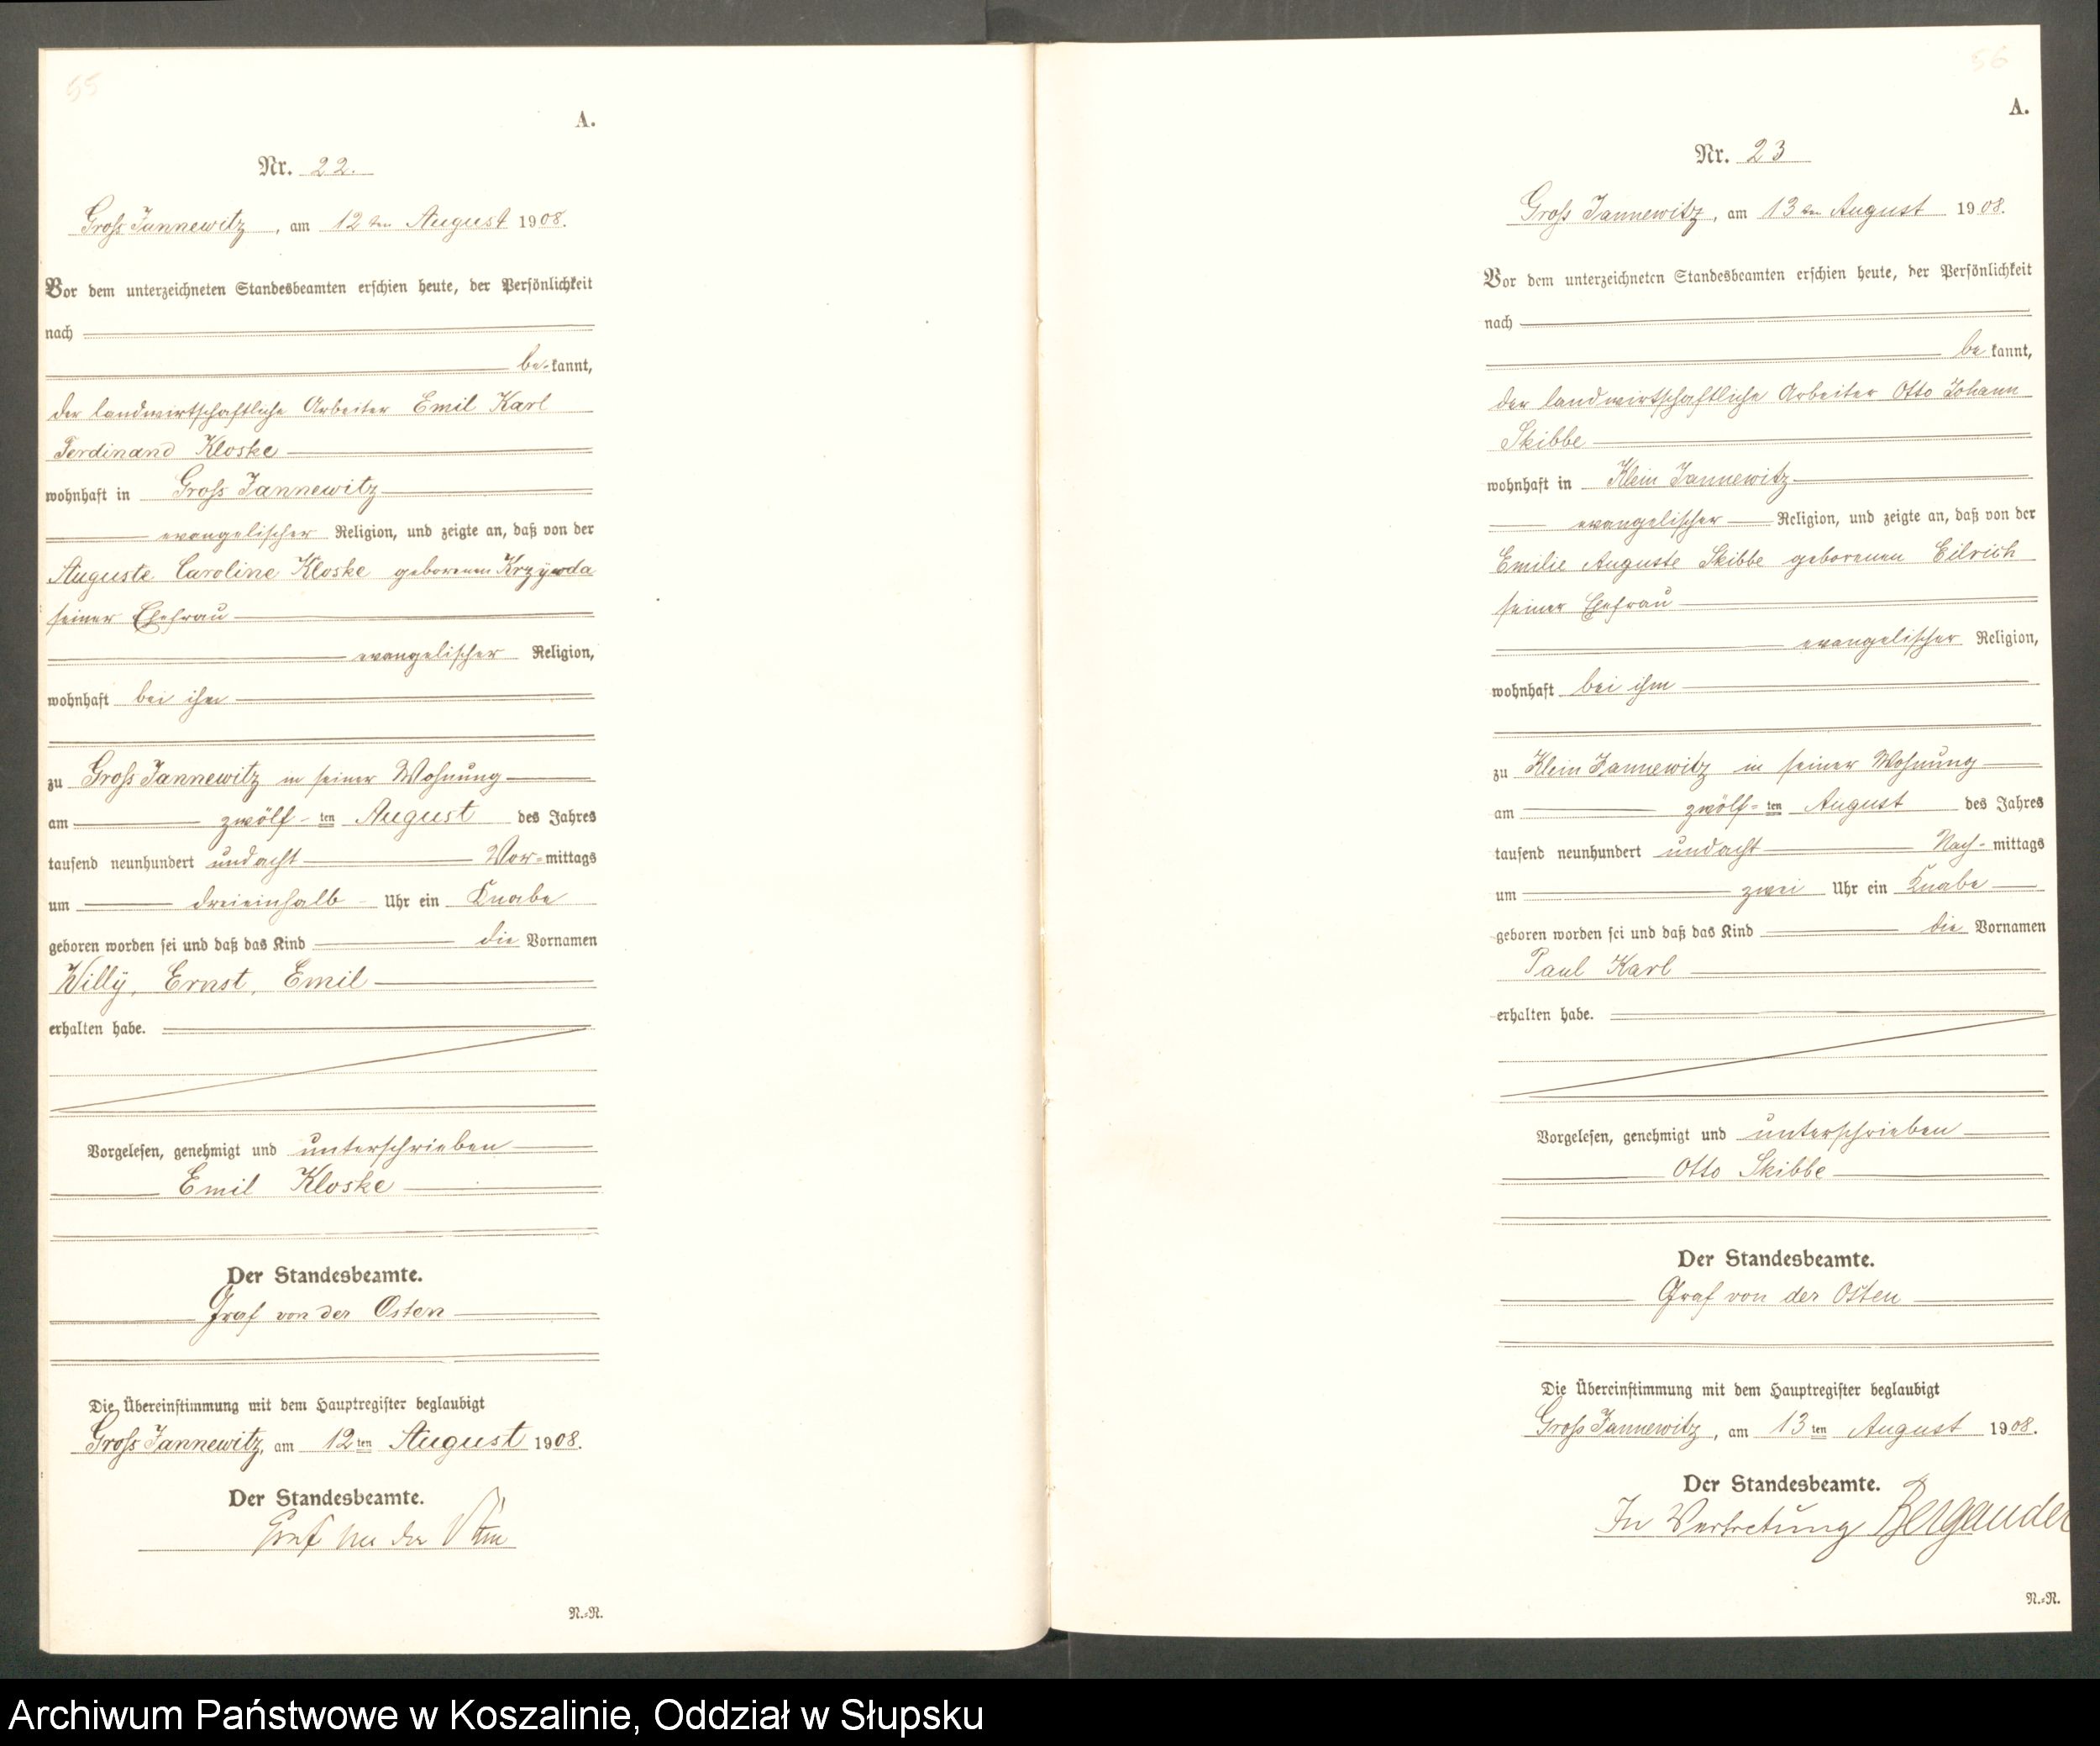 55
A.
Nr. 22.
Groß Jannewitz, am 12ten August 1908.
Vor dem unterzeichneten Standesbeamten erschien heute, der Persönlichkeit
nach
be-kannt,
der landwirtschaftliche Arbeiter Emil Karl
Ferdinand Kloske
wohnhaft in Groß Jannewitz
evangelischer Religion, und zeigte an, daß von der
Auguste Caroline Kloske geborenen Krzywda
seiner Ehefrau
evangelischer Religion,
wohnhaft bei ihm
zu Groß Jannewitz in seiner Wohnung
am zwölf-ten August des Jahres
tausend neunhundert undacht Vor-mittags
um dreieinhalb Uhr ein Knabe
geboren worden sei und daß das Kind die Vornamen
Willÿ, Ernst, Emil
erhalten habe.
Vorgelesen, genehmigt und unterschrieben
Emil Kloske
Der Standesbeamte.
Graf von der Osten
Die Übereinstimmung mit dem Hauptregister beglaubigt
Groß Jannewitz, am 12ten August 1908.
Der Standesbeamte.
Graf von der Osten
N.=N.
56
A.
Nr. 23
Groß Jannewitz, am 13ten August 1908.
Vor dem unterzeichneten Standesbeamten erschien heute, der Persönlichkeit
nach
be kannt,
der landwirtschaftliche Arbeiter Otto Johann
Skibbe
wohnhaft in Klein Jannewitz
evangelischer Religion, und zeigte an, daß von der
Emilie Auguste Skibbe geborenen Eilrich
seiner Ehefrau
evangelischer Religion,
wohnhaft bei ihm
zu Klein Jannewitz in seiner Wohnung
am zwölf=ten August des Jahres
tausend neunhundert undacht Nach-mittags
um zwei Uhr ein Knabe
geboren worden sei und daß das Kind die Vornamen
Paul Karl
erhalten habe.
Vorgelesen, genehmigt und unterschrieben
Otto Skibbe
Der Standesbeamte.
Graf von der Osten
Die Übereinstimmung mit dem Hauptregister beglaubigt
Groß Jannewitz, am 13ten August 1908.
Der Standesbeamte.
In Vertretung Bergander
N.=N.
Archiwum Państwowe w Koszalinie, Oddział w Słupsku